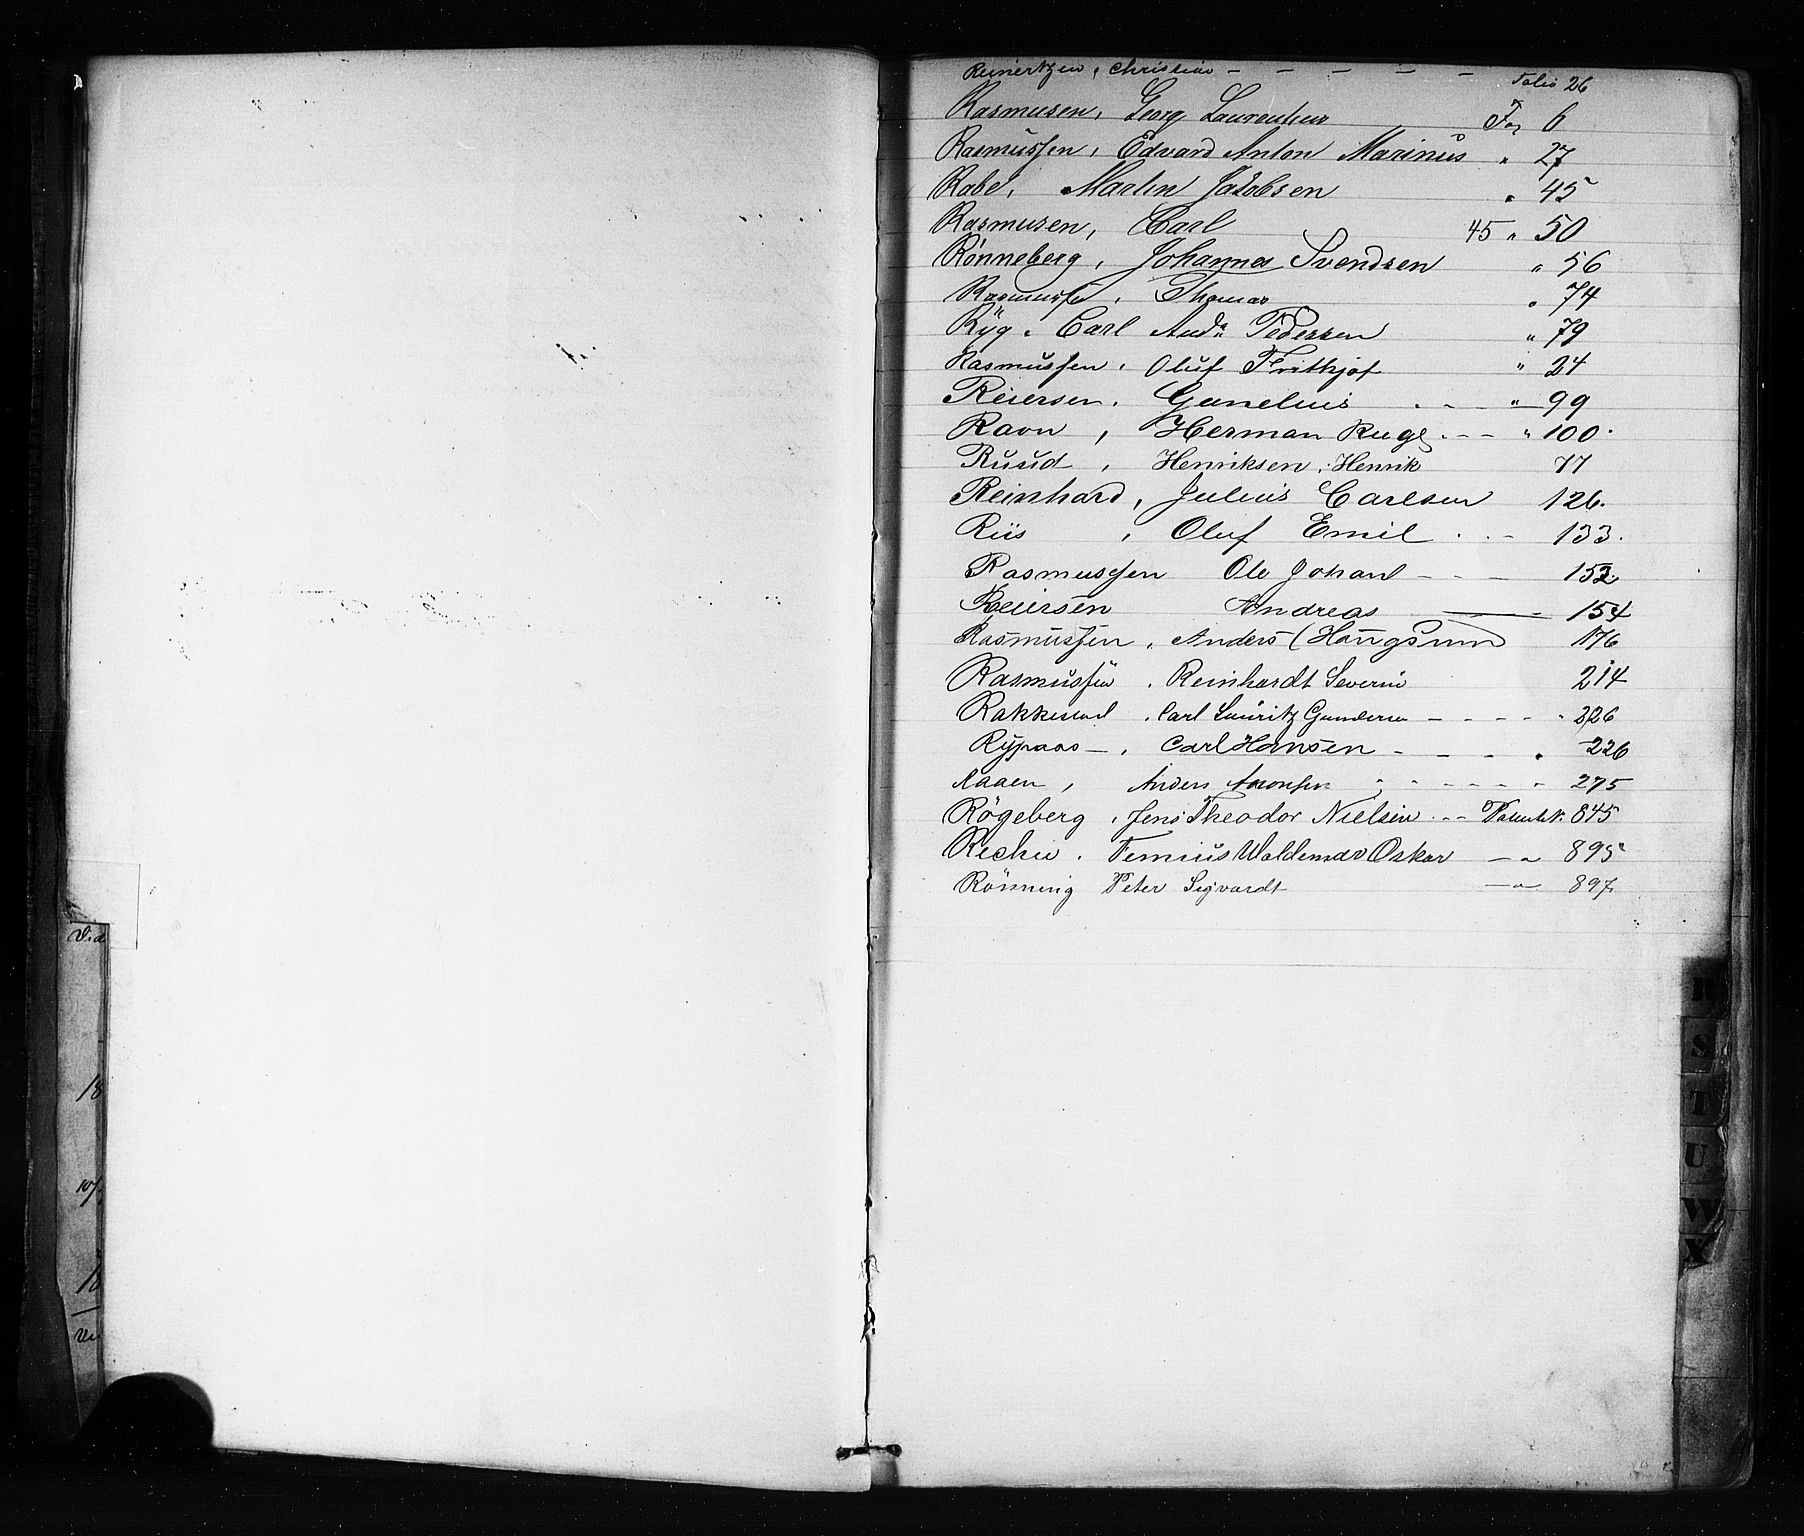 Reinertzen, Christian - - - - - Folio 26
Rasmusen, Georg Laurentius Fol 6
Rasmussen, Edvard Anton Marinus " 27
Rabe, Martin Jakobsen " 45
Rasmusen, Carl 45 " 50
Rønneberg, Johannes Svendsen " 56
Rasmussen, Thomas " 74
Ryg, Carl Andr. Pedersen " 79
Rasmussen, Oluf Frithjof " 24
Reiersen, Gunelius - - " 99
Ravn, Herman Ruge - - " 100.
Ruud, Henriksen, Henrik 77
Reinhard, Julius Carlsen 126.
Riis, Oluf Emil - - 133.
Rasmussen Ole Johan - - - 152
Reiersen Andreas 154
Rasmussen, Anders (Haugsund 176
Rasmussen, Reinhardt Severin 214
Rakkestad, Carl Lauritz Gundersen - - - - 226
Rypaas -, Carl Hansen - - - " 226
Raaen, Anders Aronsen " - - - - " 275
Rögeberg, Jens Theodor Nielsen - - Patent N. 845
Fernius Waldemar Oskar - " 895
Rönning Peter Sigvardt - " 897
Vid
18
10/
18
R
S
T
U
W
X